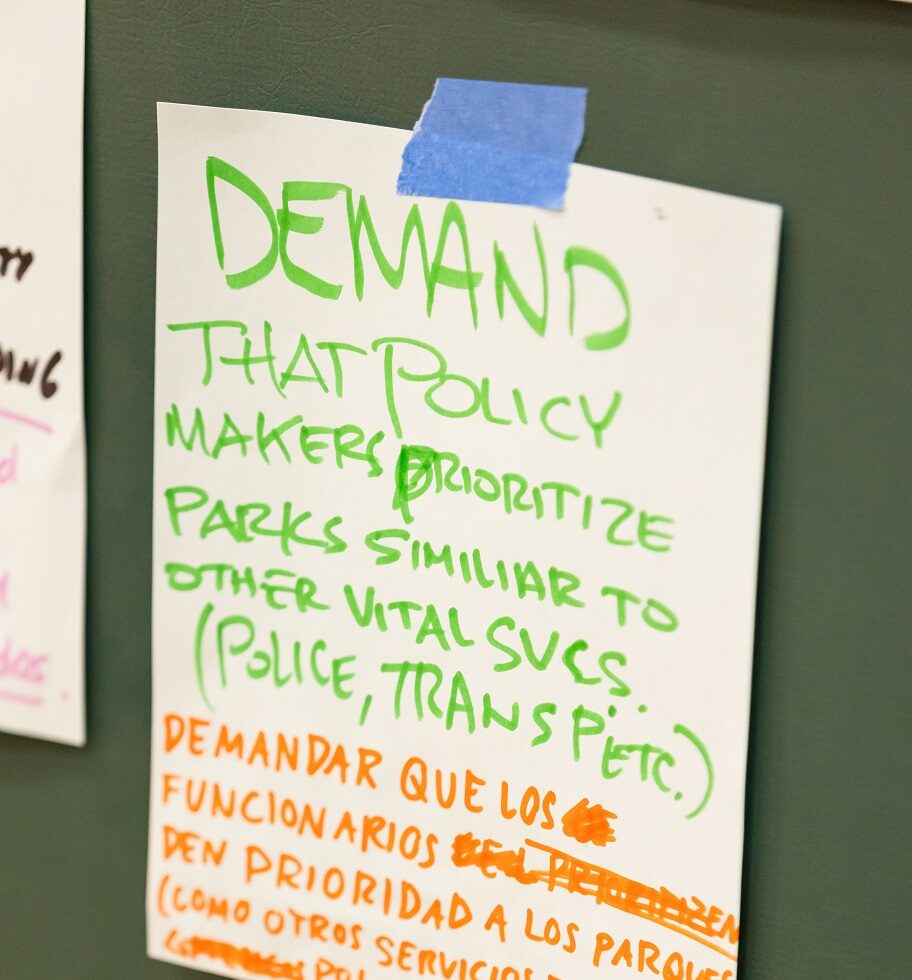 TY
DING
d
dos.
DEMAND
THAT POLICY
MAKERS PRIORITIZE
PARKS SIMILIAR TO
OTHER VITAL SVCS.
(POLICE, TRANSP. ETC.)
DEMANDAR QUE LOS
FUNCIONARIOS PRIORITIZEN
DEN PRIORIDAD A LOS PARQUES
(COMO OTROS SERVICIOS
POL